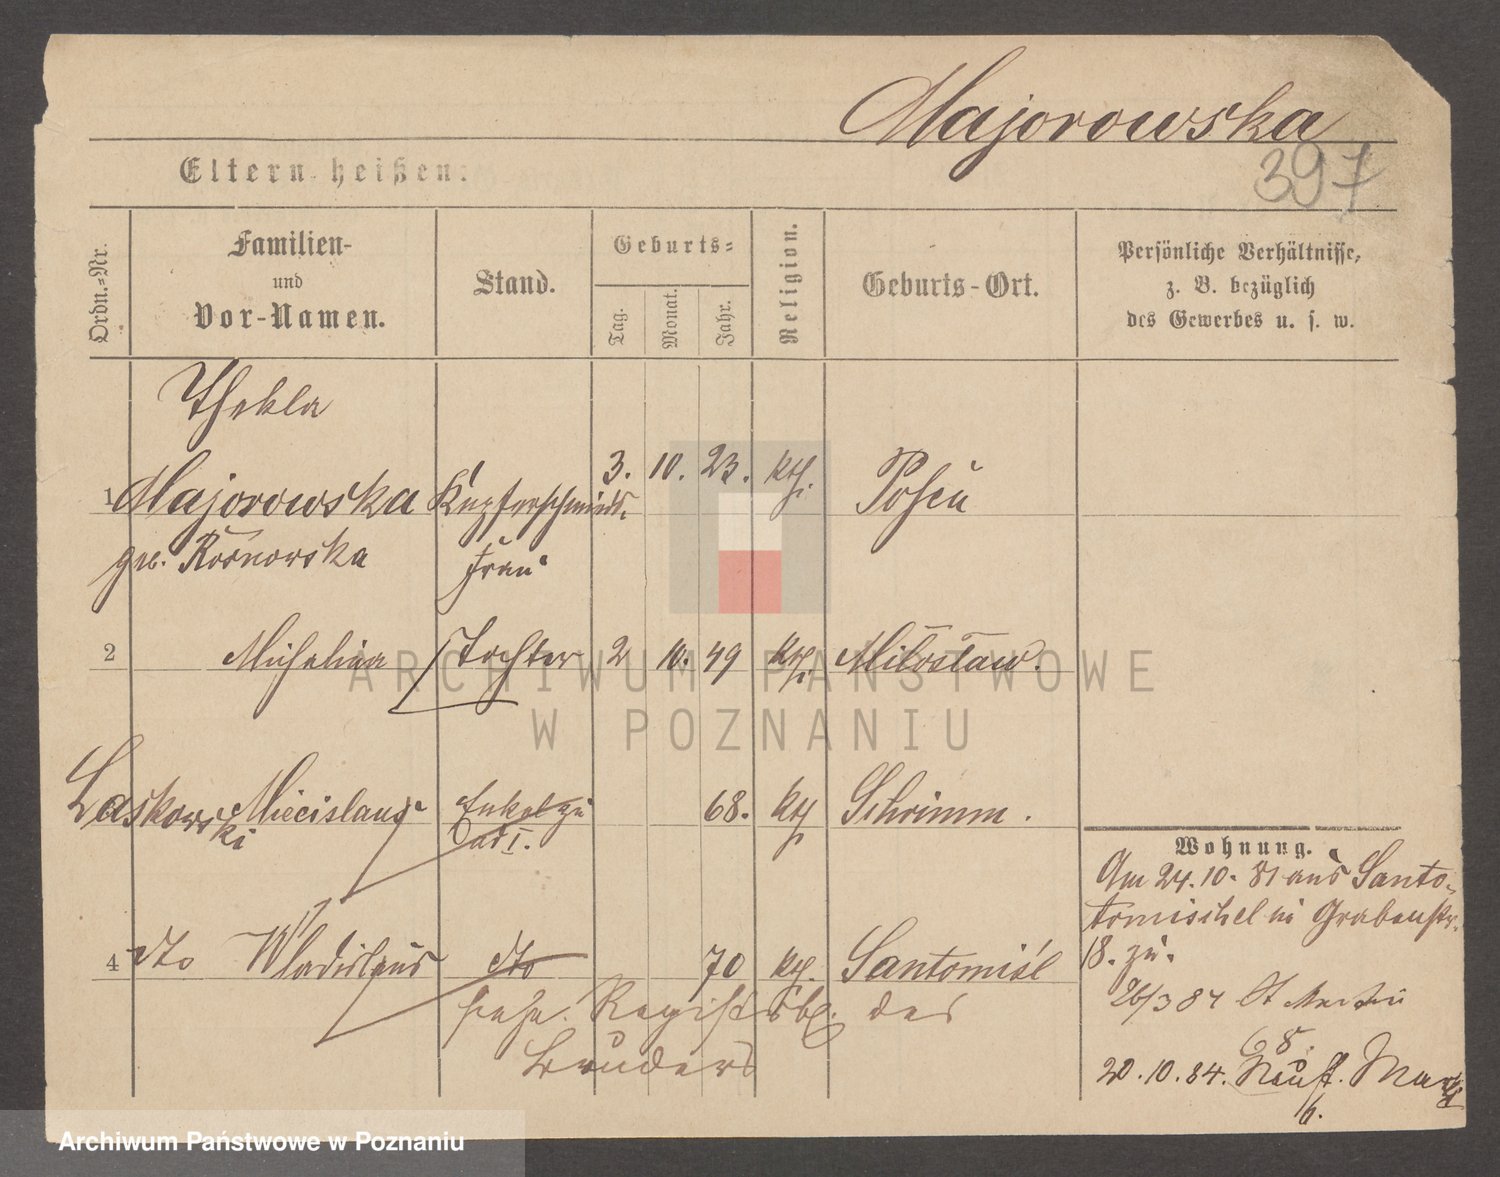 Majorowska
397
Eltern heißen:
Ordn.-Nr.
Familien-
und
Vor-Namen.
Stand.
Geburts-
Tag.
Monat.
Jahr.
Religion.
Geburts-Ort.
Persönliche Verhältnisse,
z. B. bezüglich
des Gewerbes u. s. w.
Thekla
1 Majorowska Kupferschmieds 3. 10. 23. kth. Posen
geb. Frau
2 Michalina Tochter 2 10. 49 kth. Miloslaw.
Laskowski Miecislaus Enkel zu 68. kth Schrimm.
ad 1.
4 dto Wladislaus dto 70 kth. Santomisl
siehe Registrbl. des
Bruders
Wohnung.
Am 24.10.81 aus Santo-
tomischel in Grabenstr.
18. zu.
26/3 84 St Martin
68.
20.10.84. Neust. Markt
6.
ARCHIWUM PAŃSTWOWE
W POZNANIU
Archiwum Państwowe w Poznaniu